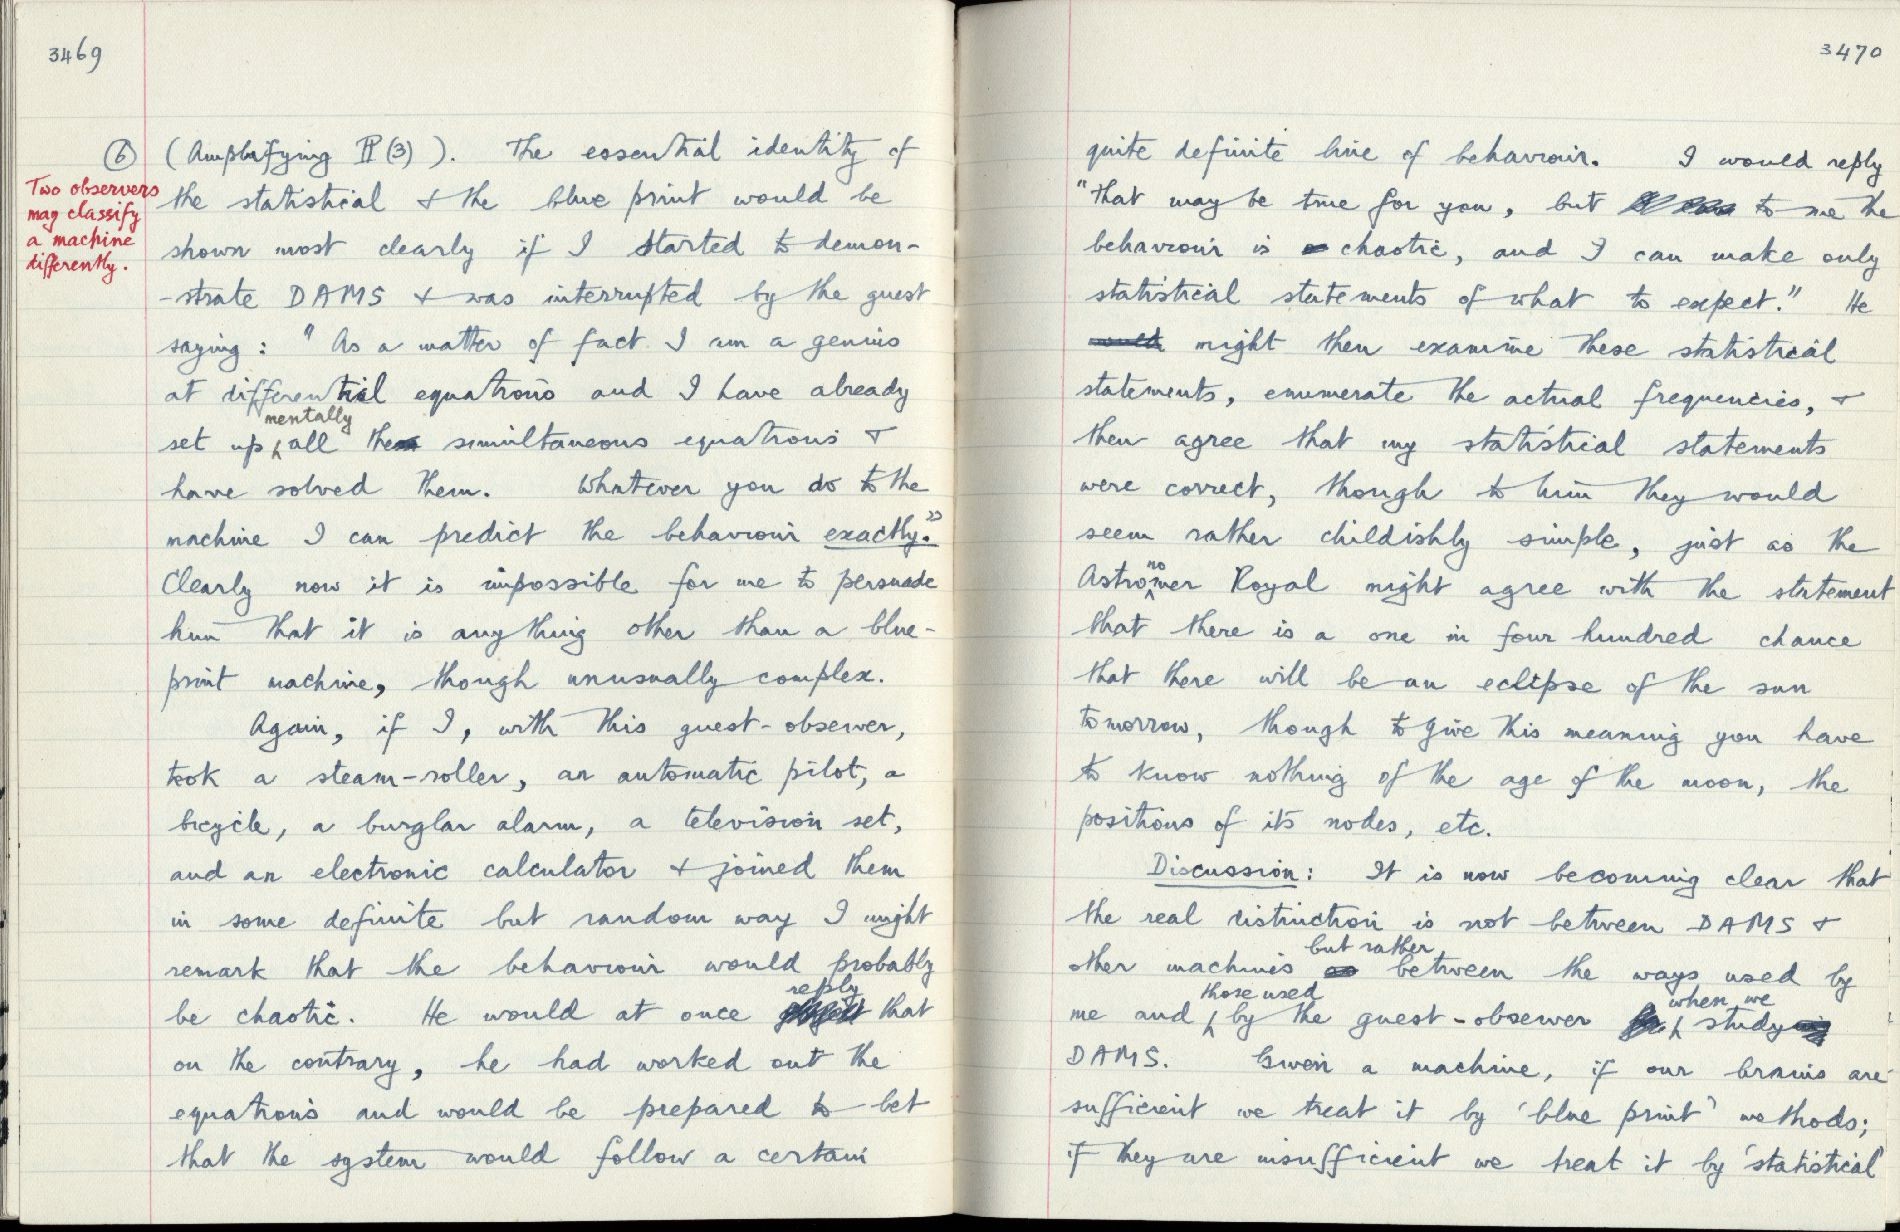 3469
⑥ (Amplifying II (3)). The essential identity of
Two observers
may classify
a machine
differently.
the statistical & the blue print would be
shown most clearly if I started to demon-
-strate DAMS & was interrupted by the guest
saying: "As a matter of fact I am a genius
at differential equations and I have already
set up mentally all the simultaneous equations &
have solved them. Whatever you do to the
machine I can predict the behaviour exactly."
Clearly now it is impossible for me to persuade
him that it is anything other than a blue-
print machine, though unusually complex.
Again, if I, with this guest-observer,
took a steam-roller, an automatic pilot, a
bicycle, a burglar alarm, a television set,
and an electronic calculator & joined them
in some definite but random way I might
remark that the behaviour would probably
be chaotic. He would at once reply that
on the contrary, he had worked out the
equations and would be prepared to bet
that the system would follow a certain
3470
quite definite line of behaviour. I would reply
"That may be true for you, but to me the
behaviour is chaotic, and I can make only
statistical statements of what to expect." He
might then examine these statistical
statements, enumerate the actual frequencies, &
then agree that my statistical statements
were correct, though to him they would
seem rather childishly simple, just as the
Astronomer Royal might agree with the statement
that there is a one in four hundred chance
that there will be an eclipse of the sun
tomorrow, though to give this meaning you have
to know nothing of the age of the moon, the
positions of its nodes, etc.
Discussion: It is now becoming clear that
the real distinction is not between DAMS &
other machines but rather between the ways used by
me and those used by the guest-observer when we study
DAMS. Given a machine, if our brains are
sufficient we treat it by 'blue print' methods;
if they are insufficient we treat it by 'statistical'